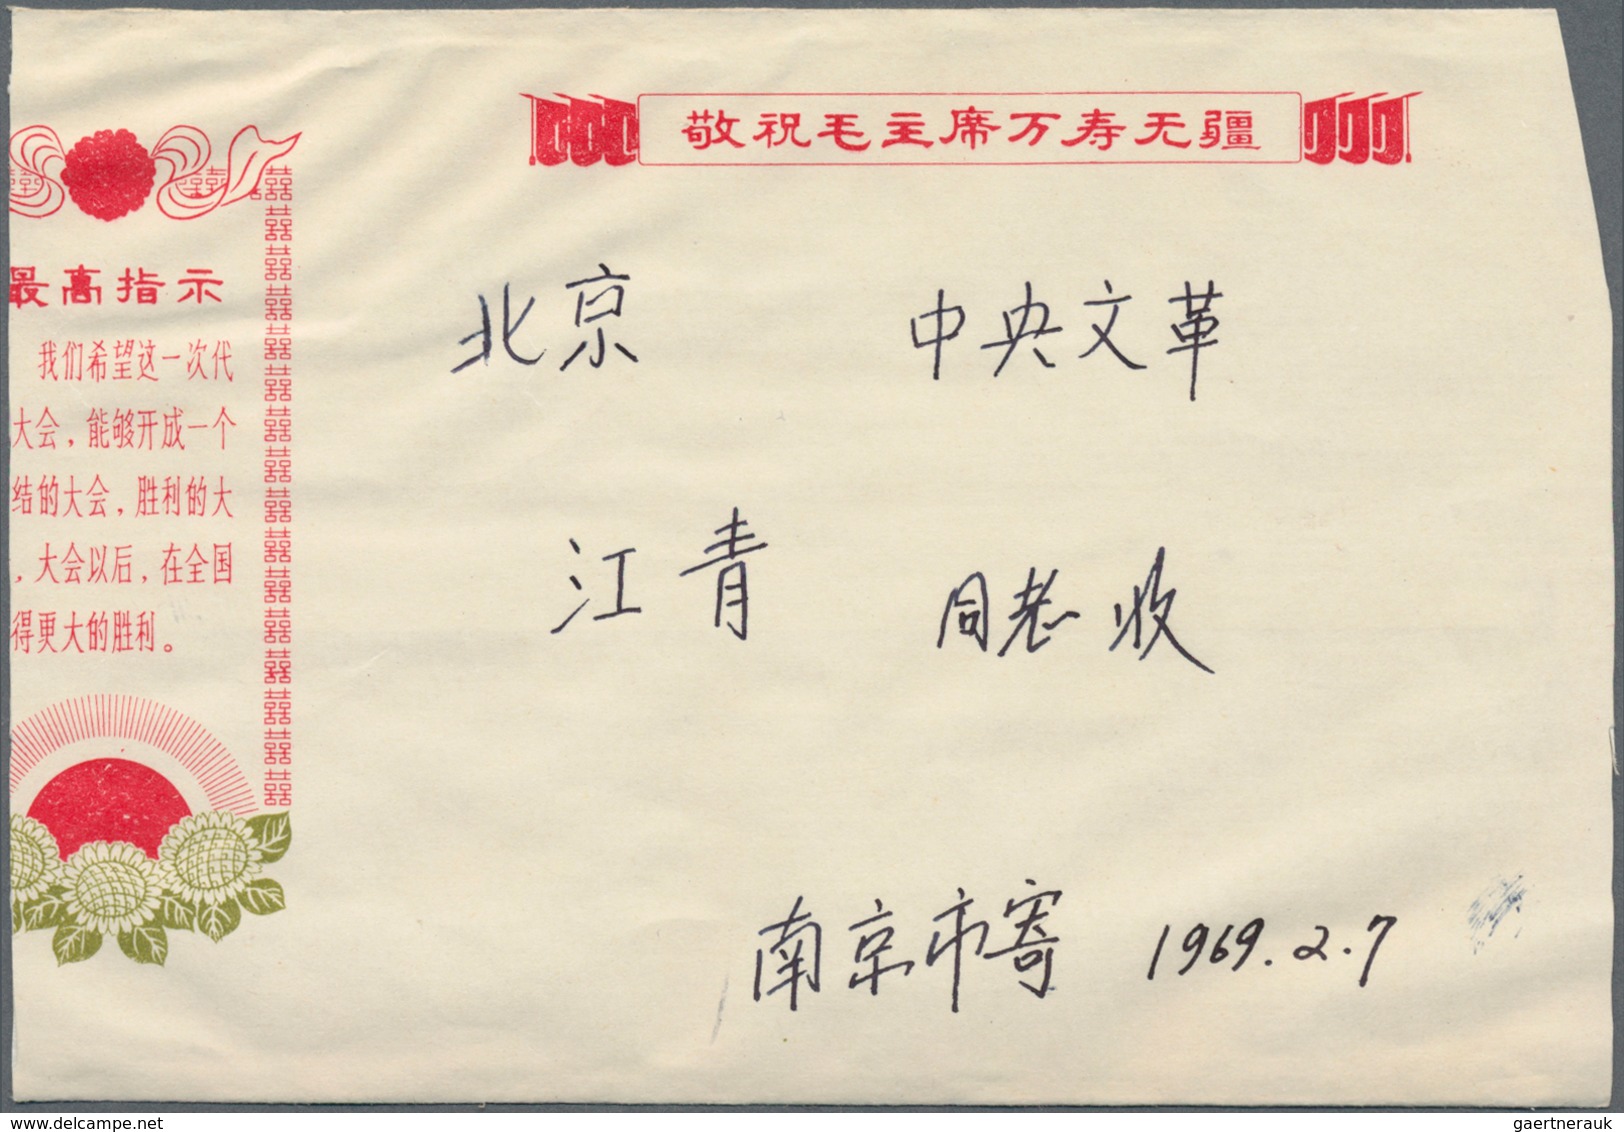 敬祝毛主席万寿无疆
最高指示
我们希望这一次代
大会，能够开成一个
结的大会，胜利的大
，大会以后，在全国
得更大的胜利。
北京 中央文革
江青 同志收
南京市寄 1969.2.7
delcampe.net
gaertnerauk